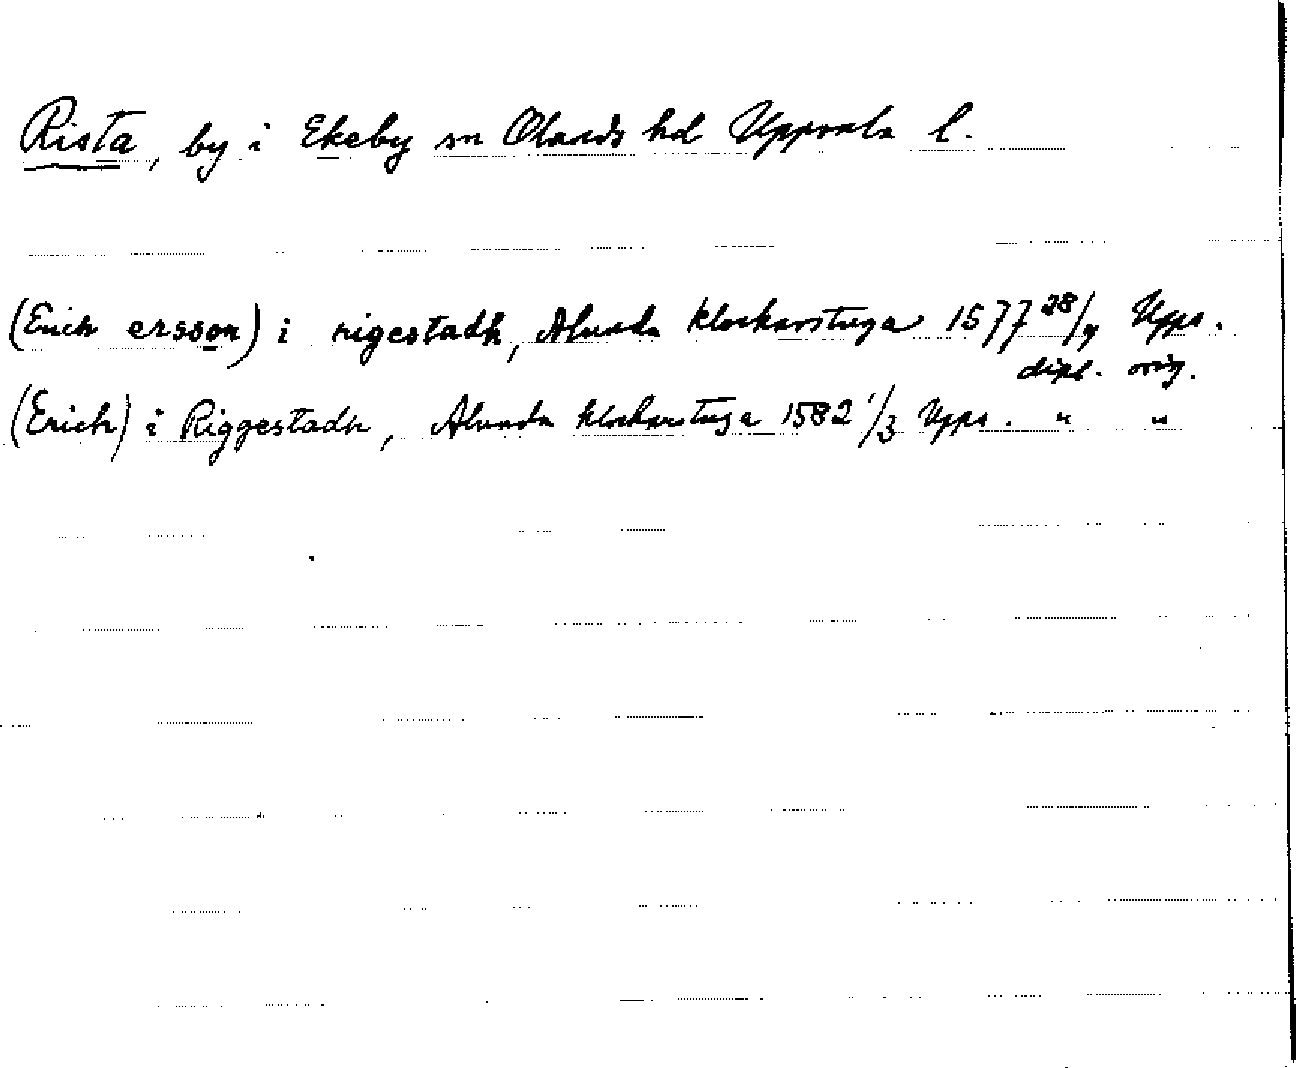 Rista, by i Ekeby sn Olands hd Uppsala l.
(Erich ersson) i rigestadh, Alunda klockarstuga 1577 28/9 Upps.
dipl. orig.
(Erich) i Riggestadh, Alunda klockarstuga 1582 1/3 Upps. " "